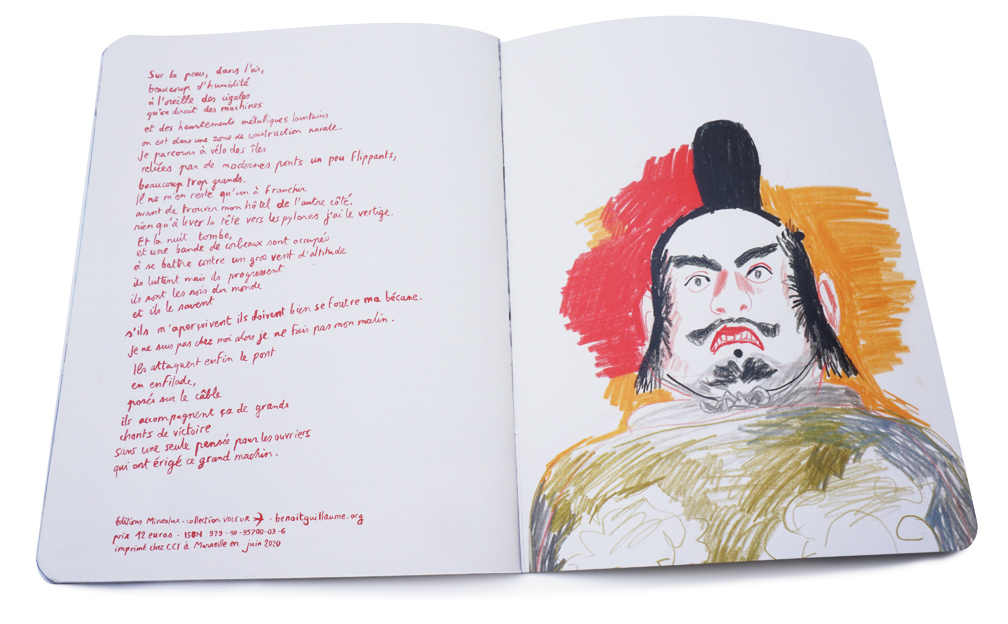 Sur la peau, dans l'air,
beaucoup d'humidité
à l'oreille des cigales
qu'on dirait des machines
et des heurtements métalliques lointains
on est dans une zone de construction navale.
Je parcours à vélo des îles
reliées par de modernes ponts un peu flippants,
beaucoup trop grands.
Il ne m'en reste qu'un à franchir
avant de trouver mon hôtel de l'autre côté,
rien qu'à lever la tête vers les pylones j'ai le vertige.
Et la nuit tombe,
et une bande de corbeaux sont occupés
à se battre contre un gros vent d'altitude
ils luttent mais ils progressent
ils sont les rois du monde
et ils le savent
s'ils m'aperçoivent ils doivent bien se foutre ma bécane.
Je ne suis pas chez moi alors je ne fais pas mon malin.
Ils attaquent enfin le pont
en enfilade,
posés sur le câble
ils accompagnent ça de grands
chants de victoire
sans une seule pensée pour les ouvriers
qui ont érigé ce grand machin.
éditions Miracolux - collection VOLEUR - benoitguillaume.org
prix 12 euros - ISBN 979-10-95700-03-6
imprimé chez CCI à Marseille en juin 2020